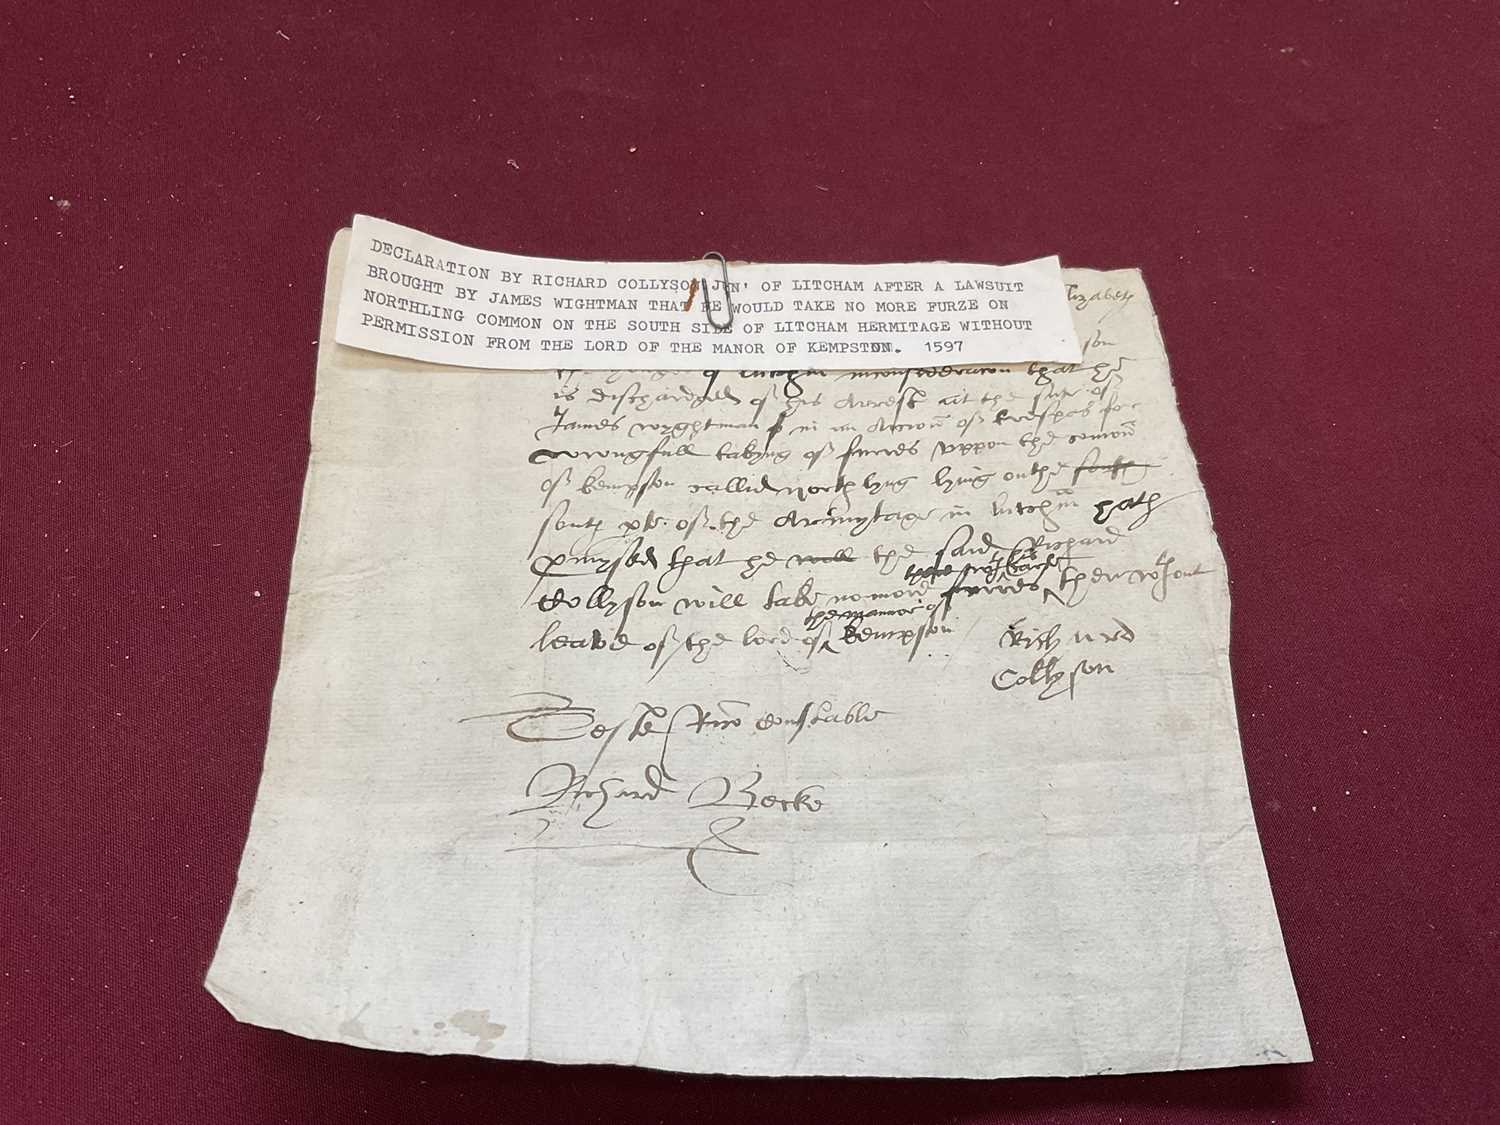 DECLARATION BY RICHARD COLLYSON JUN' OF LITCHAM AFTER A LAWSUIT
BROUGHT BY JAMES WIGHTMAN THAT HE WOULD TAKE NO MORE FURZE ON
NORTHLING COMMON ON THE SOUTH SIDE OF LITCHAM HERMITAGE WITHOUT
PERMISSION FROM THE LORD OF THE MANOR OF KEMPSTON. 1597
Elizabeth
son
of that he
is discharged of his Arrest at the sute of
James wyghtman in an Accon of trespas for
wrongfull takyng of furres uppon the comon
of kempson callid northlyng lying on the south
south pte of the Armytage in litcham hath
pmysed that he will the said Richard
Collyson will take no more furres then wthout
the mannor of
leave of the lord of kempson
Richard
Collyson
Teste Rico Constable
Richard Becke